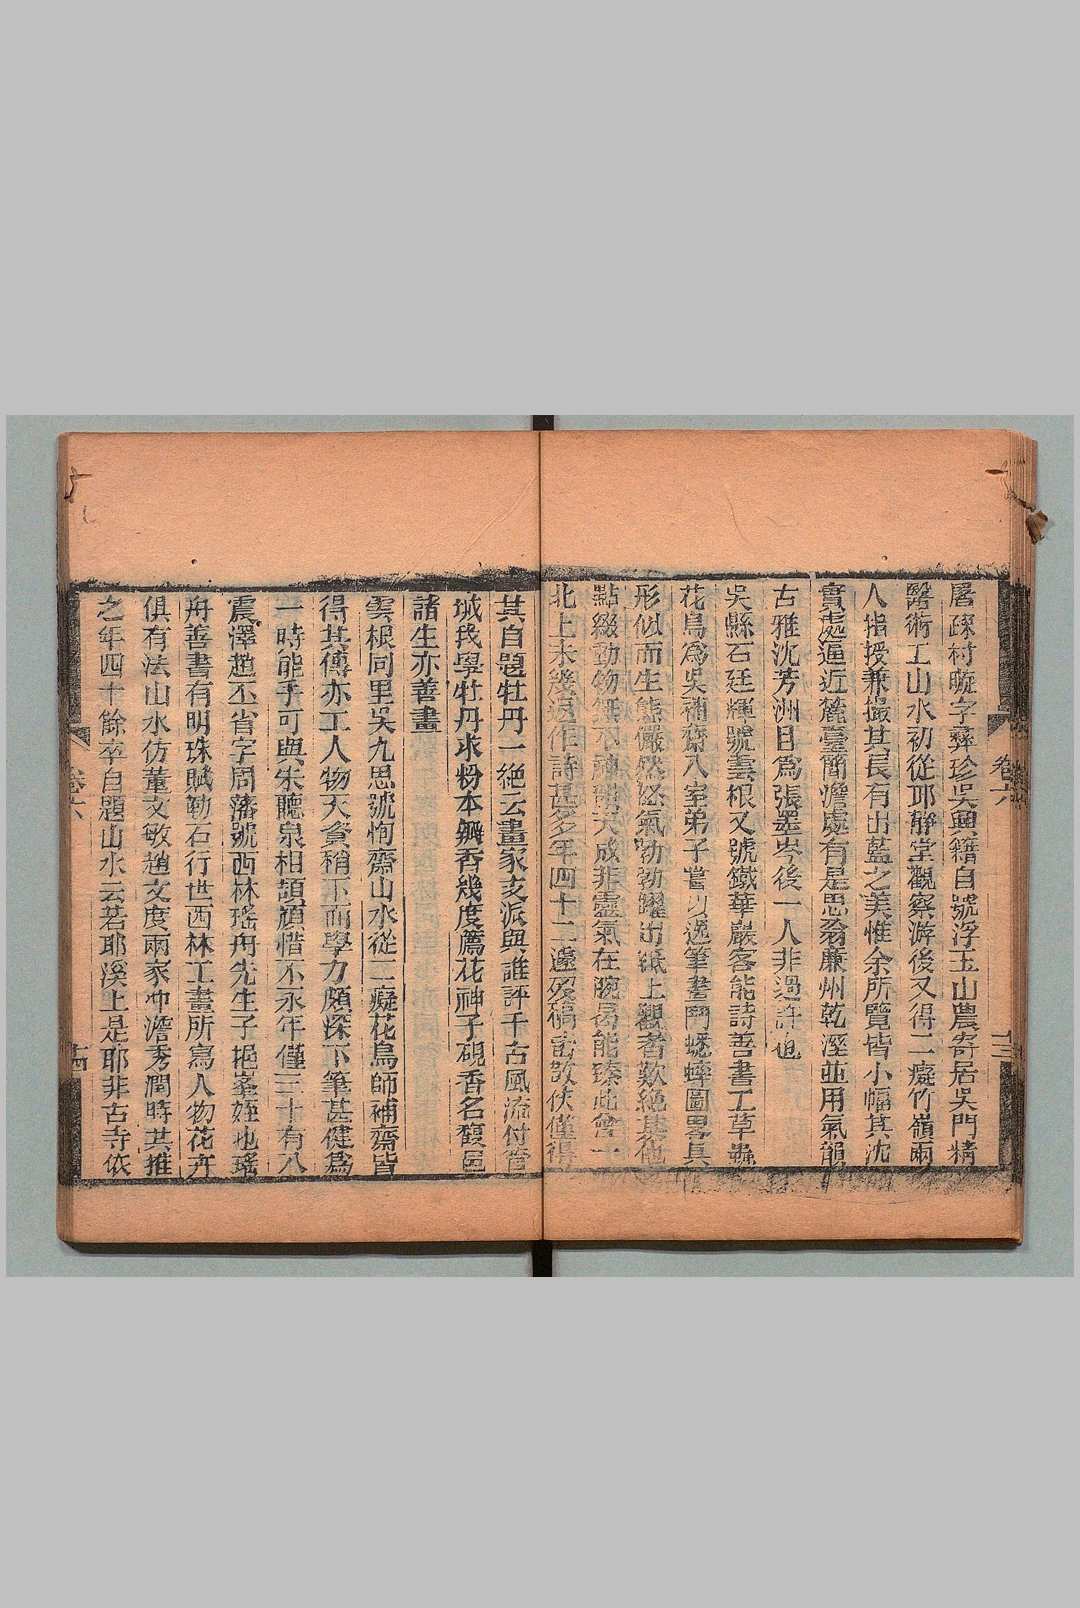 屠疎村晼字彝珍吳興籍自號浮玉山農寄居吳門精
醫術工山水初從邛靜堂觀察游後又得二癡竹嶺兩
人指授兼撮其長有出藍之美惟余所覽皆小幅其沈
實處逼近麓臺簡澹處有是思翁廉州乾溼並用氣韻
古雅沈芳洲目爲張墨岑後一人非過許也
吳縣石廷輝號雲根又號鐵華巖客能詩善書工草蟲
花鳥爲吳補齋入室弟子嘗以逸筆畫鬥蟋蟀圖畧具
形似而生態儼然怒氣勃勃躍出紙上觀者歎絕其他
點綴動物無不神韻天成非靈氣在腕曷能臻此曾一
北上未幾返作詩甚多年四十二遽歿稿密散佚僅得
卷六
十三
其自題牡丹一絕云畫家支派與誰評千古風流付管
城我學牡丹求粉本癬香幾度薦花神子硯香名馥邑
諸生亦善畫
雲根同里吳九思號恂齋山水從二癡花鳥師補齋皆
得其傳亦工人物天資稍下而學力頗深下筆甚健爲
一時能手可與朱聽泉相頡頏惜不永年僅三十有八
震澤趙丕省字周藩號西林瑤舟先生子挹峯姪也瑤
舟善書有明珠賦勒石行世西林工畫所寫人物花卉
俱有法山水仿董文敏趙文度兩家冲澹秀潤時共推
之年四十餘卒自題山水云若耶溪上是耶非古寺依
卷六
十四